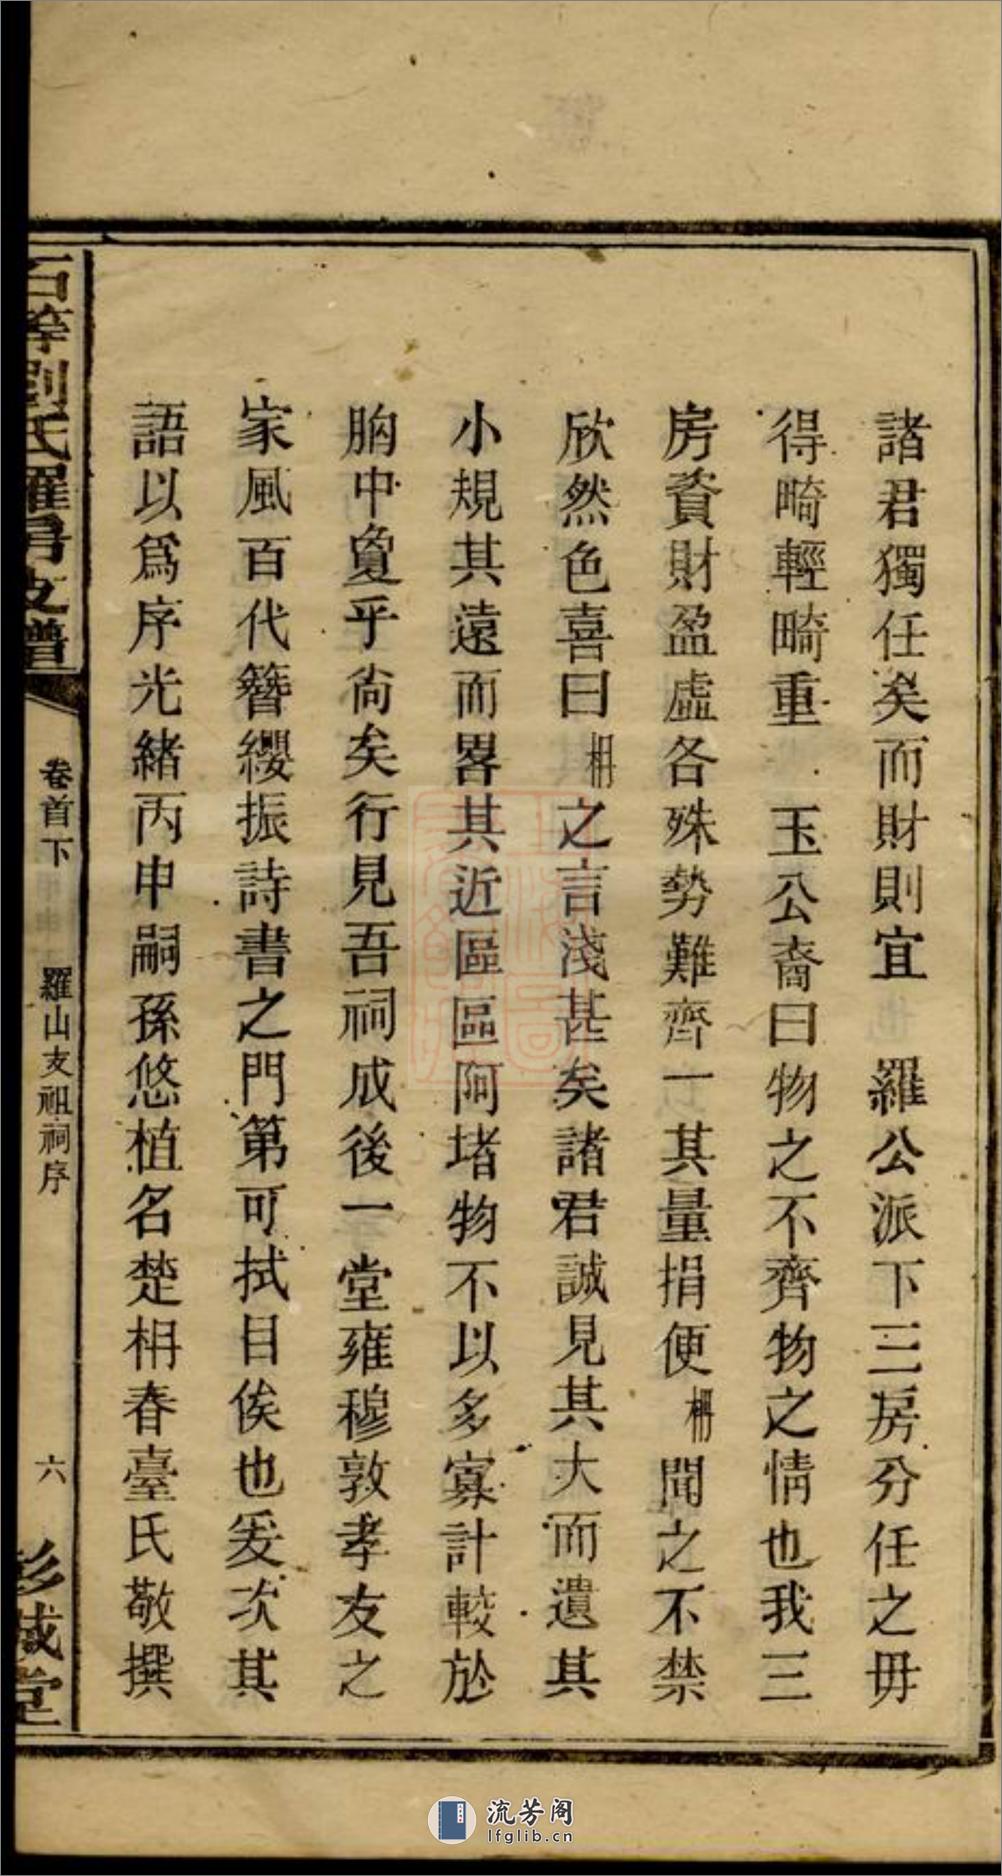 諸君獨任矣而財則宜　羅公派下三房分任之毋
得畸輕畸重　玉公裔曰物之不齊物之情也我三
房資財盈虛各殊勢難齊一其量捐便柟聞之不禁
欣然色喜曰柟之言淺甚矣諸君誠見其大而遺其
小規其遠而畧其近區區阿堵物不以多寡計較於
胸中敻乎尙矣行見吾祠成後一堂雍穆敦孝友之
家風百代簪纓振詩書之門第可拭目俟也爰次其
語以爲序光緒丙申嗣孫悠植名楚柟春臺氏敬撰
石筍劉氏羅房支譜
卷首下
羅山支祖祠序
六
彭城堂
流芳阁
lfglib.cn